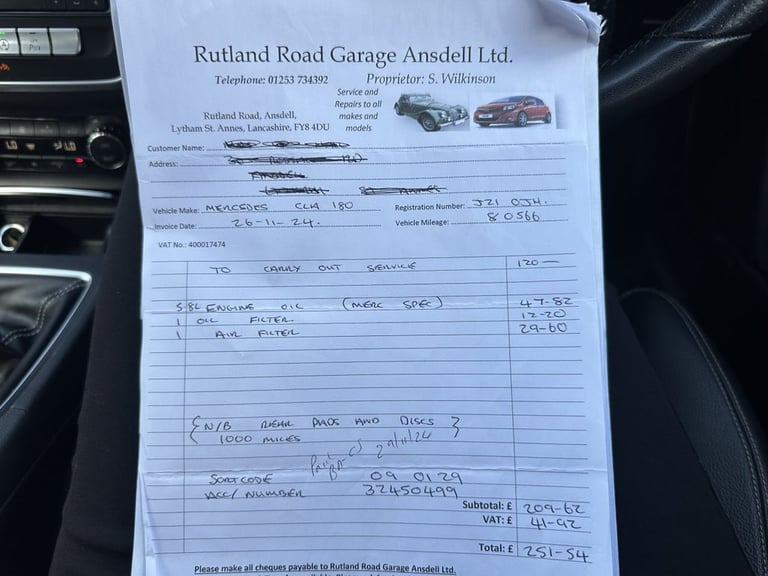 Rutland Road Garage Ansdell Ltd.
Telephone: 01253 734392 Proprietor: S. Wilkinson
Service and
Repairs to all
makes and
models
Rutland Road, Ansdell,
Lytham St. Annes, Lancashire, FY8 4DU
Customer Name:
Address:
Vehicle Make: MERCEDES CLA 180 Registration Number: J21 OJH.
Invoice Date: 26-11-24. Vehicle Mileage: 80566
VAT No.: 400017474
TO CARRY OUT SERVICE 120—
5.8L ENGINE OIL (MERC SPEC) 47-82
1 OIL FILTER. 12-20
1 AIR FILTER 29-60
{N/B REAR PADS AND DISCS}
1000 MILES
29/11/24
SORTCODE 09 01 29
ACC/ NUMBER 32450499
Subtotal: £ 209-62
VAT: £ 41-92
Total: £ 251-54
Please make all cheques payable to Rutland Road Garage Ansdell Ltd.